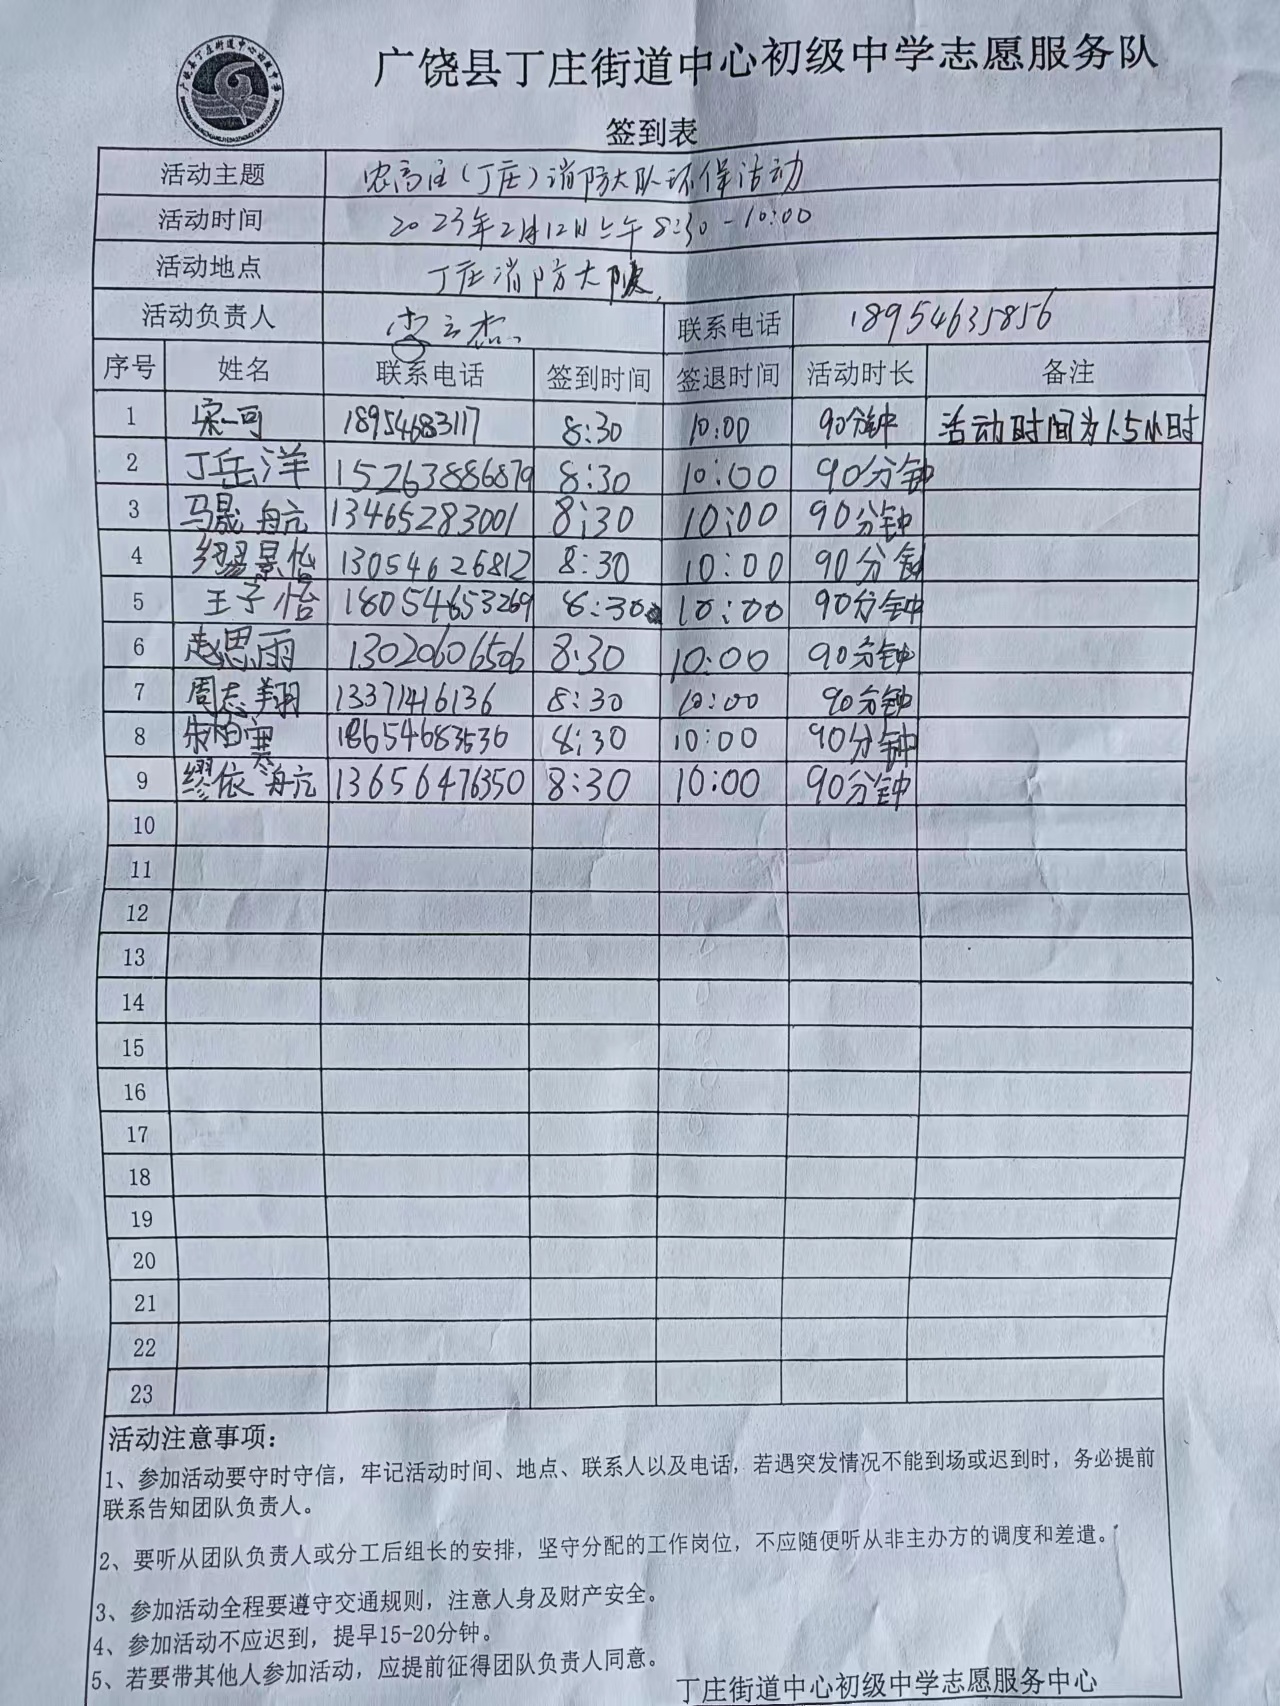 广饶县丁庄街道中心初级中学志愿服务队
签到表
活动主题 农高区(丁庄)消防大队环保活动
活动时间 2023年2月12日上午8:30-10:00
活动地点 丁庄消防大队
活动负责人 李云杰 联系电话 18954635856
序号 姓名 联系电话 签到时间 签退时间 活动时长 备注
1 宋一可 18954683117 8:30 10:00 90分钟 活动时间为1.5小时
2 丁岳洋 15263886879 8:30 10:00 90分钟
3 马晟航 13465283001 8:30 10:00 90分钟
4 缪景怡 13054626812 8:30 10:00 90分钟
5 王子怡 18054653269 8:30 10:00 90分钟
6 赵思雨 13020606506 8:30 10:00 90分钟
7 周志翔 13371416136 8:30 10:00 90分钟
8 朱柏寒 18654683536 8:30 10:00 90分钟
9 缪依航 13656476350 8:30 10:00 90分钟
10
11
12
13
14
15
16
17
18
19
20
21
22
23
活动注意事项:
1、参加活动要守时守信，牢记活动时间、地点、联系人以及电话，若遇突发情况不能到场或迟到时，务必提前
联系告知团队负责人。
2、要听从团队负责人或分工后组长的安排，坚守分配的工作岗位，不应随便听从非主办方的调度和差遣。
3、参加活动全程要遵守交通规则，注意人身及财产安全。
4、参加活动不应迟到，提早15-20分钟。
5、若要带其他人参加活动，应提前征得团队负责人同意。
丁庄街道中心初级中学志愿服务中心